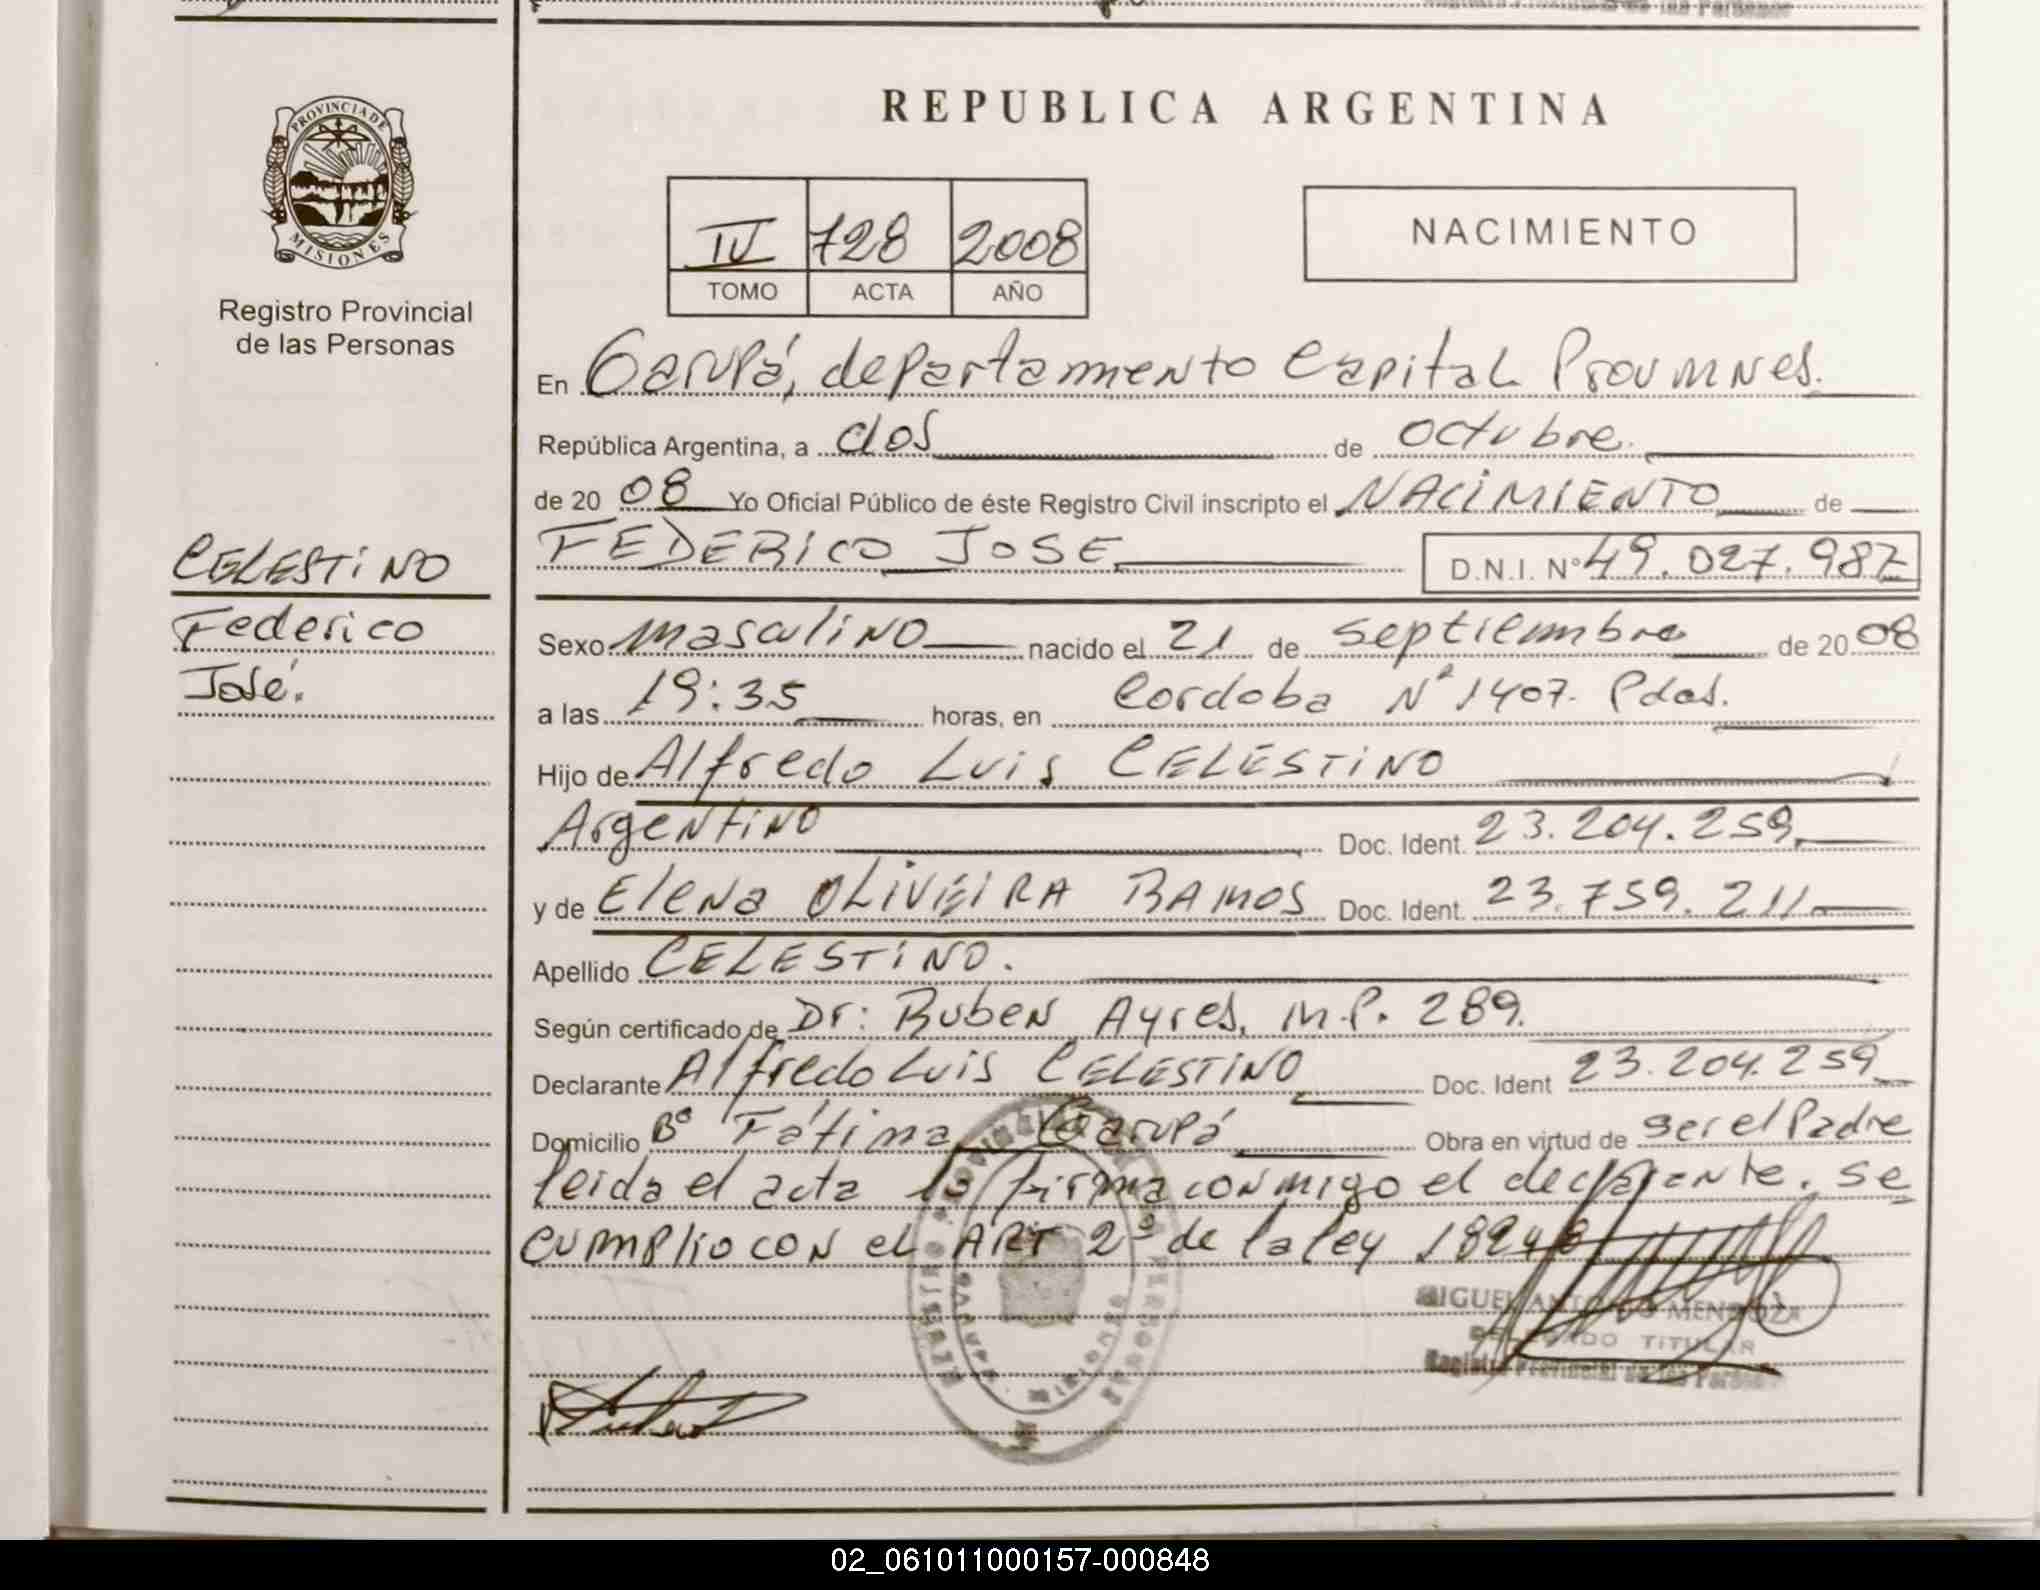 REPUBLICA ARGENTINA
PROVINCIA DE
MISIONES
Registro Provincial
de las Personas
IV 728 2008
TOMO ACTA AÑO
NACIMIENTO
En Garupá, departamento Capital Prov MNES.
República Argentina, a dos de octubre.
de 20 08 Yo Oficial Público de éste Registro Civil inscripto el NACIMIENTO de
FEDERICO JOSE D.N.I. N° 49.027.987
CELESTINO
Federico
José.
Sexo masculino nacido el 21 de septiembre de 20 08
a las 19:35 horas, en Cordoba N° 1407. Pdas.
Hijo de Alfredo Luis CELESTINO
Argentino Doc. Ident. 23.204.259
y de Elena OLIVEIRA RAMOS Doc. Ident. 23.759.211
Apellido CELESTINO.
Según certificado de Dr: Ruben Ayres, M.P. 289.
Declarante Alfredo Luis CELESTINO Doc. Ident 23.204.259
Domicilio B° Fátima Garupá Obra en virtud de ser el Padre
leida el acta la firma conmigo el declarante. se
cumplio con el ART 2° de la ley 18248
MIGUEL ANTONIO MENDOZA
DELEGADO TITULAR
Registro Provincial de las Personas
02_061011000157-000848